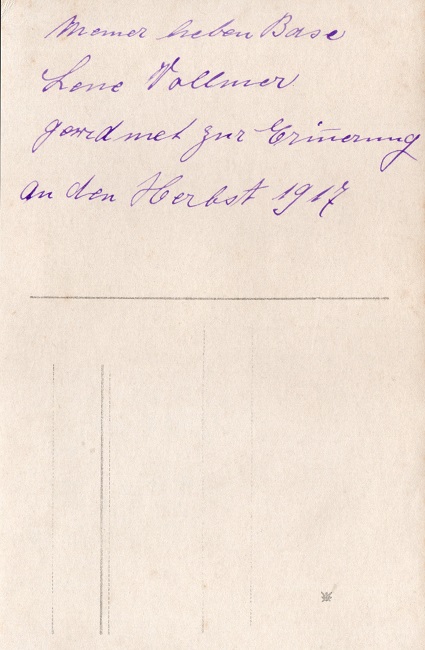 Meiner lieben Base
Lene Vollmer
gewidmet zur Erinnerung
an den Herbst 1917